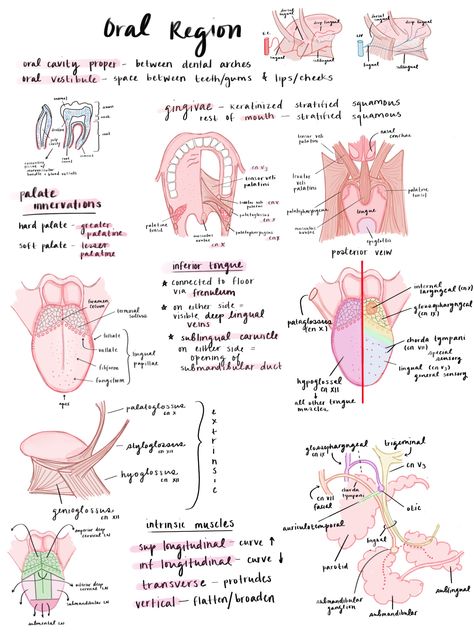 Oral Region
oral cavity proper - between dental arches
oral vestibule - space between teeth/gums & lips/cheeks
deep lingual
lingual
sublingual
gingivae - keratinized stratified squamous
rest of mouth - stratified squamous
palate
innervations
hard palate - greater
palatine
soft palate - lesser
palatine
CN V3
tensor veli
palatini
levator veli
palatini
palatoglossus
CN X
palatopharyngeus
CN X
palatine
tonsil
tensor veli
palatini
levator veli
palatini
palatopharyngeus
nasal
conchae
palatine
tonsil
tongue
epiglottis
posterior veiw
inferior tongue
* connected to floor
via frenulum
* on either side =
visible deep lingual
veins
* sublingual caruncle
on either side =
opening of
submandibular duct
foramen
cecum
terminal
sulcus
foliate
vallate
filiform
fungiform
lingual
papillae
apex
palaglossus
(CN X)
hypoglossal
(CN XII)
→ all other tongue
muscles
internal
laryngeal (CN X)
glossopharyngeal
(CN IX)
chorda tympani
(CN VII)
special
sensory
lingual (CN V3)
general sensory
palatoglossus
CN X
styloglossus
CN XII
hyoglossus
CN XII
genioglossus
CN XII
extrinsic
intrinsic muscles
sup longitudinal - curve ↑
inf longitudinal - curve ↓
transverse - protrudes
vertical - flatten/broaden
superior deep
cervical LN
inferior deep
cervical LN
submandibular LN
submental LN
glossopharyngeal
CN IX
trigeminal
CN V3
CN VII
facial
chorda
tympani
auriculotemporal
otic
lingual
parotid
submandibular
ganglion
submandibular
sublingual